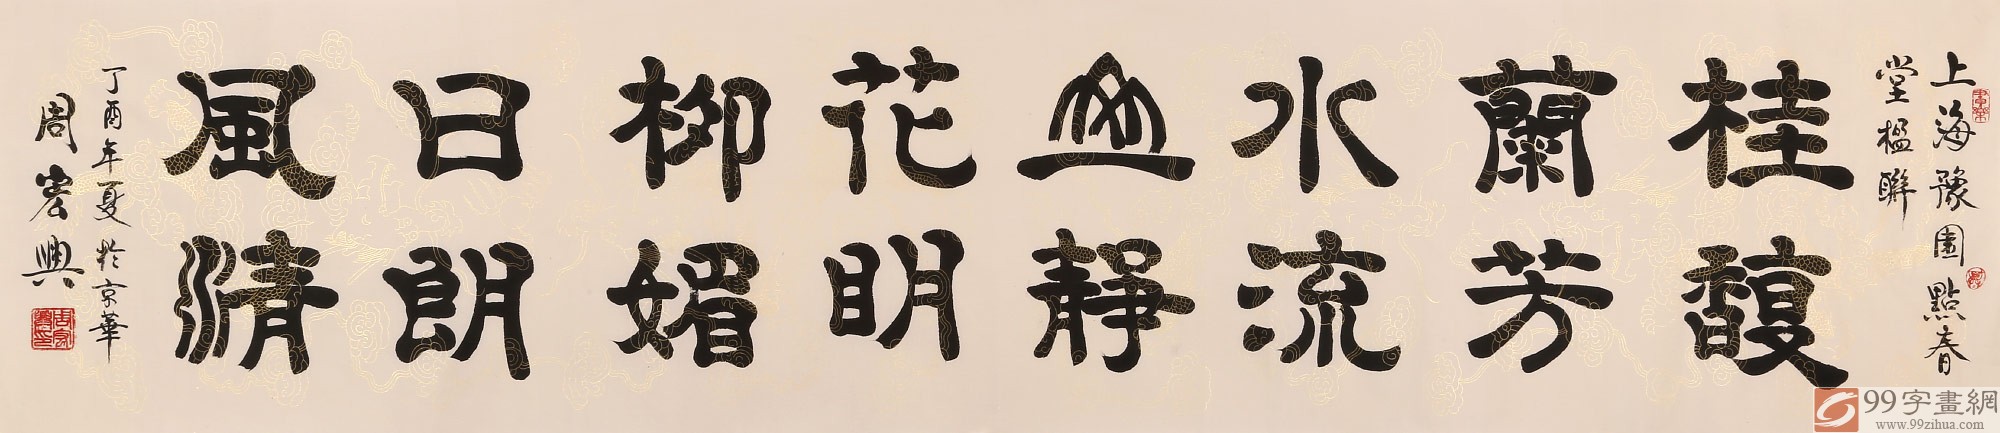 上海豫園點春
堂楹聯
桂馥
蘭芳
水流
山靜
花明
柳媚
日朗
風清
丁酉年夏於京華
周宏興
99字畫網
www.99zihua.com